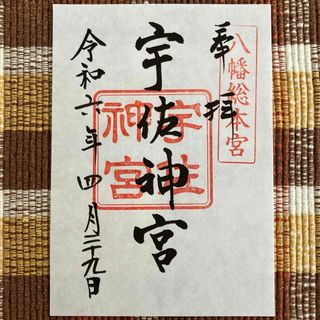 八幡総本宮
奉拝
宇佐神宮
宇佐
神宮
令和六年四月二十九日